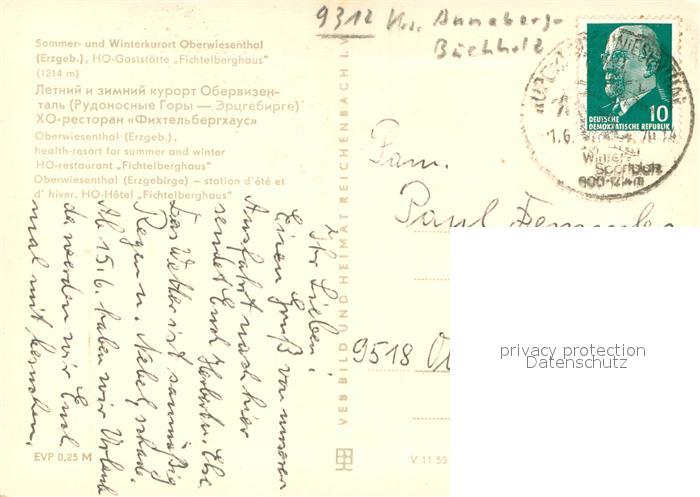 9312 Kr. Annaberg-
Buchholz
Sommer- und Winterkurort Oberwiesenthal
(Erzgeb.), HO-Gaststätte „Fichtelberghaus"
(1214 m)
Летний и зимний курорт Обервизен-
таль (Рудоносные Горы — Эрцгебирге)
ХО-ресторан «Фихтельбергхаус»
Oberwiesenthal (Erzgeb.),
health-resort for summer and winter
HO-restaurant „Fichtelberghaus"
Oberwiesenthal (Erzgebirge) – station d'été et
d' hiver, HO-Hôtel „Fichtelberghaus"
Ihr Lieben!
Einen Gruß von unserer
Ausfahrt nach hier
sendet Euch Herbert u. Ilse.
Das Wetter ist saumäßig
Regen u. Nebel, schade.
Ab 15.6. haben wir Urlaub
da werden wir Euch
mal mit besuchen.
EVP 0,25 M
VEB BILD UND HEIMAT REICHENBACH I. V.
V 11 50
10
DEUTSCHE
DEMOKRATISCHE REPUBLIK
1.6.
Winter-
Sportplatz
900-1214m
Fam.
Paul
9518
privacy protection
Datenschutz